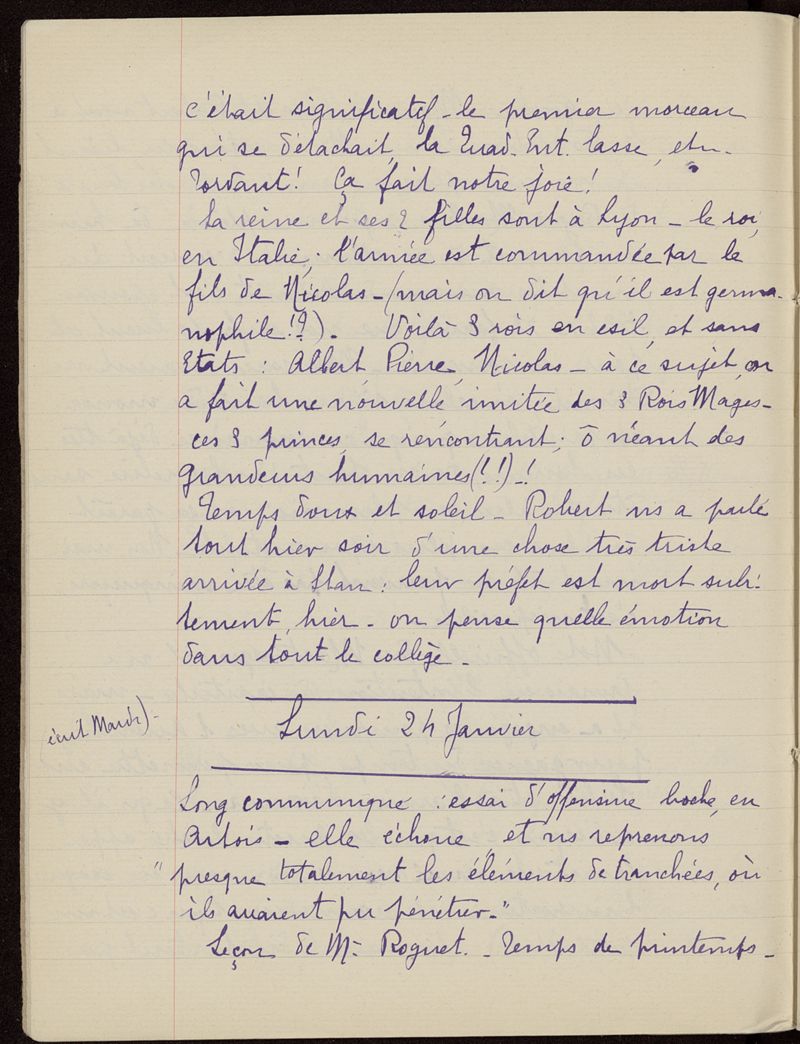 c'était significatif - le premier morceau
qui se détachait, la Quad. Ent. lasse, etc.
Tordant! Ça fait notre joie!
La reine et ses 2 filles sont à Lyon - le roi,
en Italie; l'armée est commandée par le
fils de Nicolas - (mais on dit qu'il est germa-
nophile!?). Voilà 3 rois en exil, et sans
Etats : Albert, Pierre, Nicolas - à ce sujet, on
a fait une nouvelle imitée des 3 Rois Mages -
ces 3 princes, se rencontrant; ô néant des
grandeurs humaines (!!) - !
Temps doux et soleil - Robert ns a parlé
tout hier soir d'une chose très triste
arrivée à Stan : leur préfet est mort subi-
tement, hier - on pense quelle émotion
dans tout le collège -
Lundi 24 Janvier
(écrit Mardi) -
Long communiqué : essai d'offensive boche, en
Artois - elle échoue, et ns reprenons
"presque totalement les éléments de tranchées, où
ils avaient pu pénétrer -"
Leçon de Mr Roguet. - Temps de printemps -